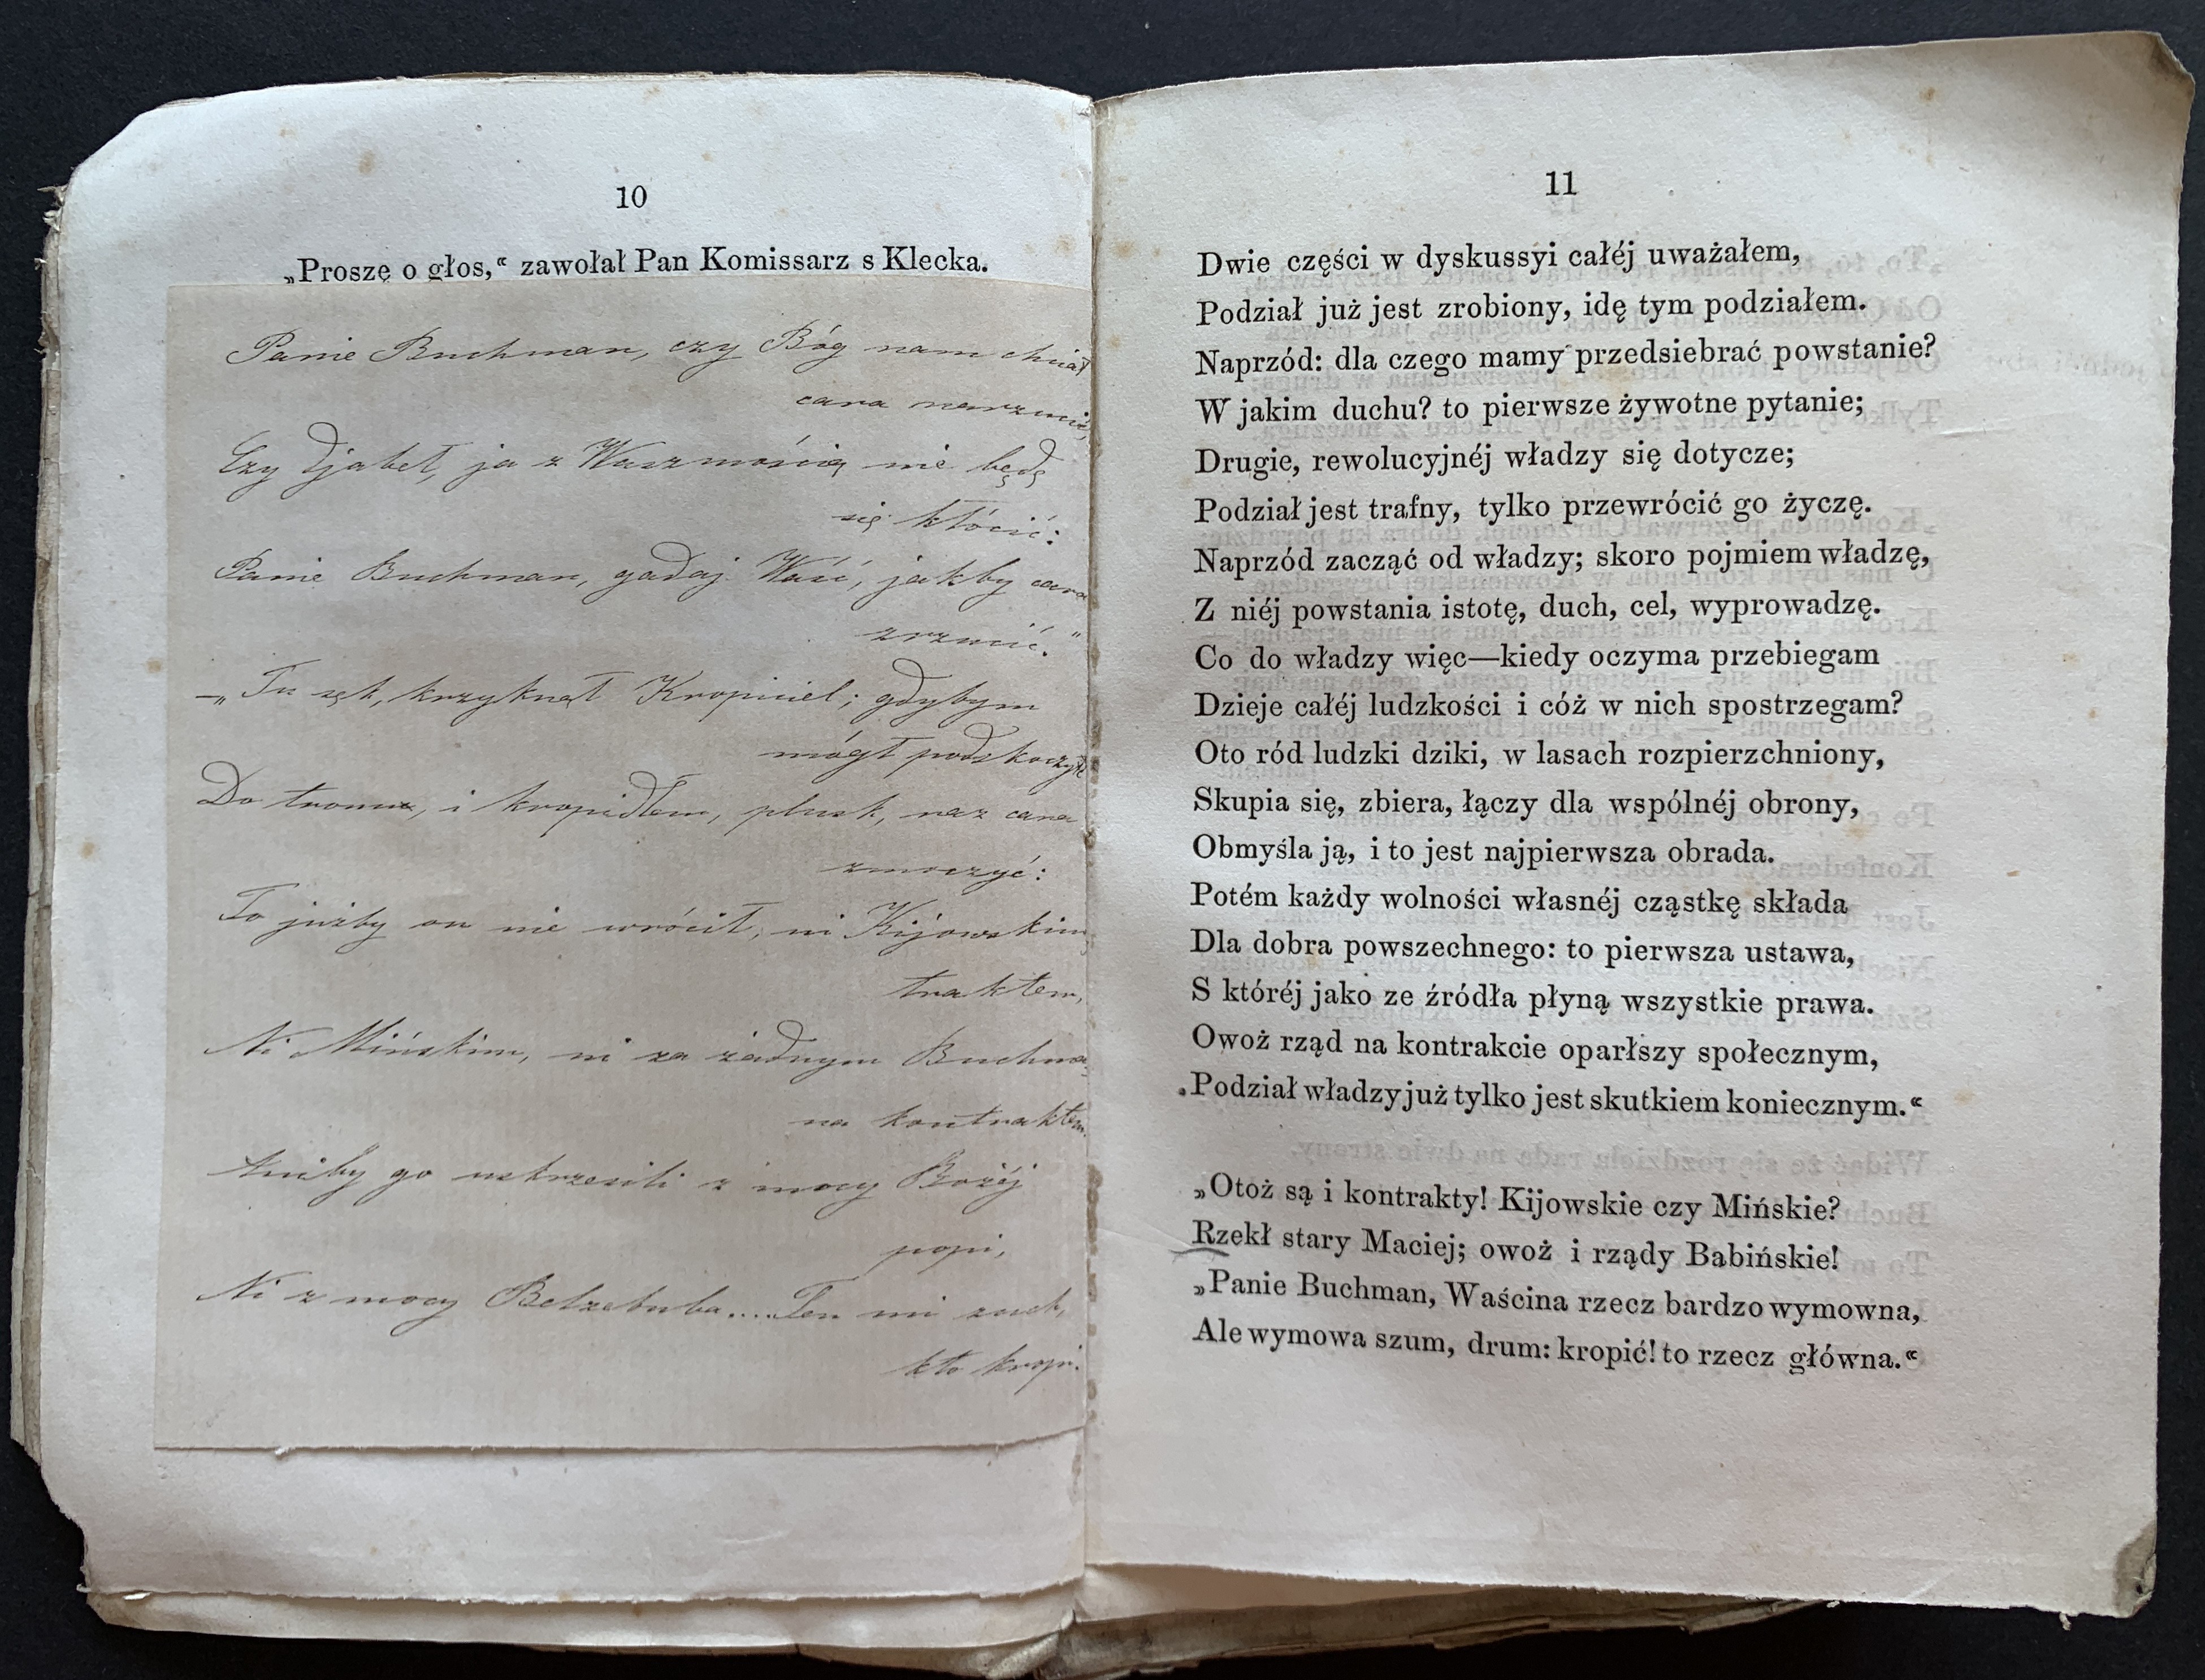 10
„Proszę o głos,“ zawołał Pan Komissarz s Klecka.
Panie Buchman, czy Bóg nam chciał
cara narzucić,
Czy djabeł, ja z Waszmością nie będę
się kłócić:
Panie Buchman, gadaj Waść, jakby cara
zrzucić.“
—„Tu sęk, krzyknął Kropiciel; gdybym
mógł podskoczyć
Do tronu, i kropidłem, plusk, raz cara
zmoczyć:
To jużby on nie wrócił, ni Kijowskim
traktem,
Ni Mińskim, ni za żadnym Buchma-
na kontraktem.
Aniby go wskrzesili z mocy Bożéj
popi,
Ni z mocy Belzebuba.... Ten mi zuch,
kto kropi.
11
Dwie części w dyskussyi całéj uważałem,
Podział już jest zrobiony, idę tym podziałem.
Naprzód: dla czego mamy przedsiebrać powstanie?
W jakim duchu? to pierwsze żywotne pytanie;
Drugie, rewolucyjnéj władzy się dotycze;
Podział jest trafny, tylko przewrócić go życzę.
Naprzód zacząć od władzy; skoro pojmiem władzę,
Z niéj powstania istotę, duch, cel, wyprowadzę.
Co do władzy więc—kiedy oczyma przebiegam
Dzieje całéj ludzkości i cóż w nich spostrzegam?
Oto ród ludzki dziki, w lasach rozpierzchniony,
Skupia się, zbiera, łączy dla wspólnéj obrony,
Obmyśla ją, i to jest najpierwsza obrada.
Potém każdy wolności własnéj cząstkę składa
Dla dobra powszechnego: to pierwsza ustawa,
S któréj jako ze źródła płyną wszystkie prawa.
Owoż rząd na kontrakcie oparłszy społecznym,
Podział władzy już tylko jest skutkiem koniecznym.“
„Otoż są i kontrakty! Kijowskie czy Mińskie?
Rzekł stary Maciej; owoż i rządy Babińskie!
„Panie Buchman, Waścina rzecz bardzo wymowna,
Ale wymowa szum, drum: kropić! to rzecz główna.“